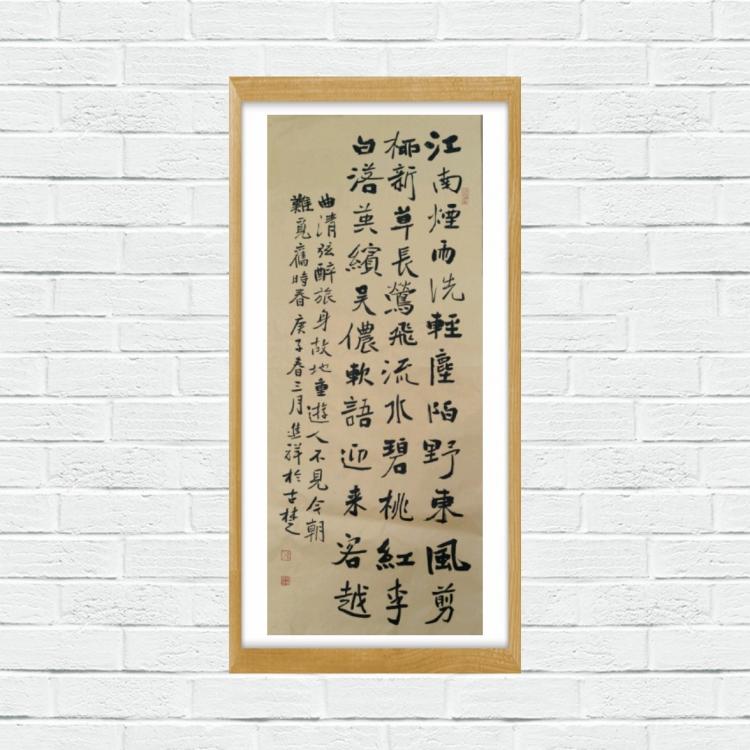 江南煙雨洗輕塵陌野東風剪
柳新草長鶯飛流水碧桃紅李
白落英繽吴儂軟語迎来客越
曲清弦醉旅身故地重遊人不見今朝
難覓舊時春庚子春三月進祥於古楚